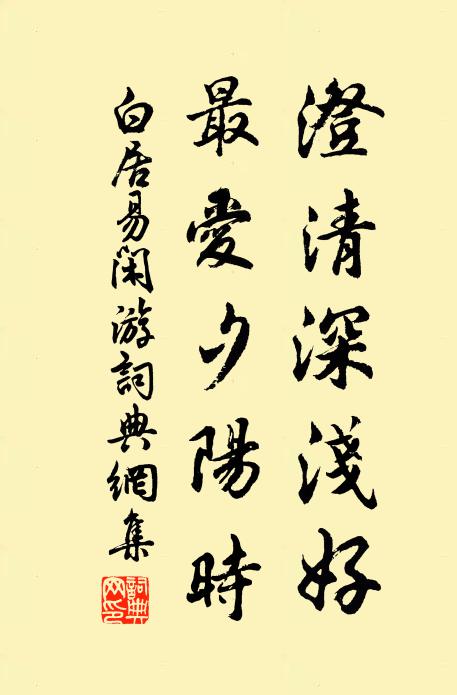 澄清深淺好
最愛夕陽時
白居易閑游詞典網集
詞典網印